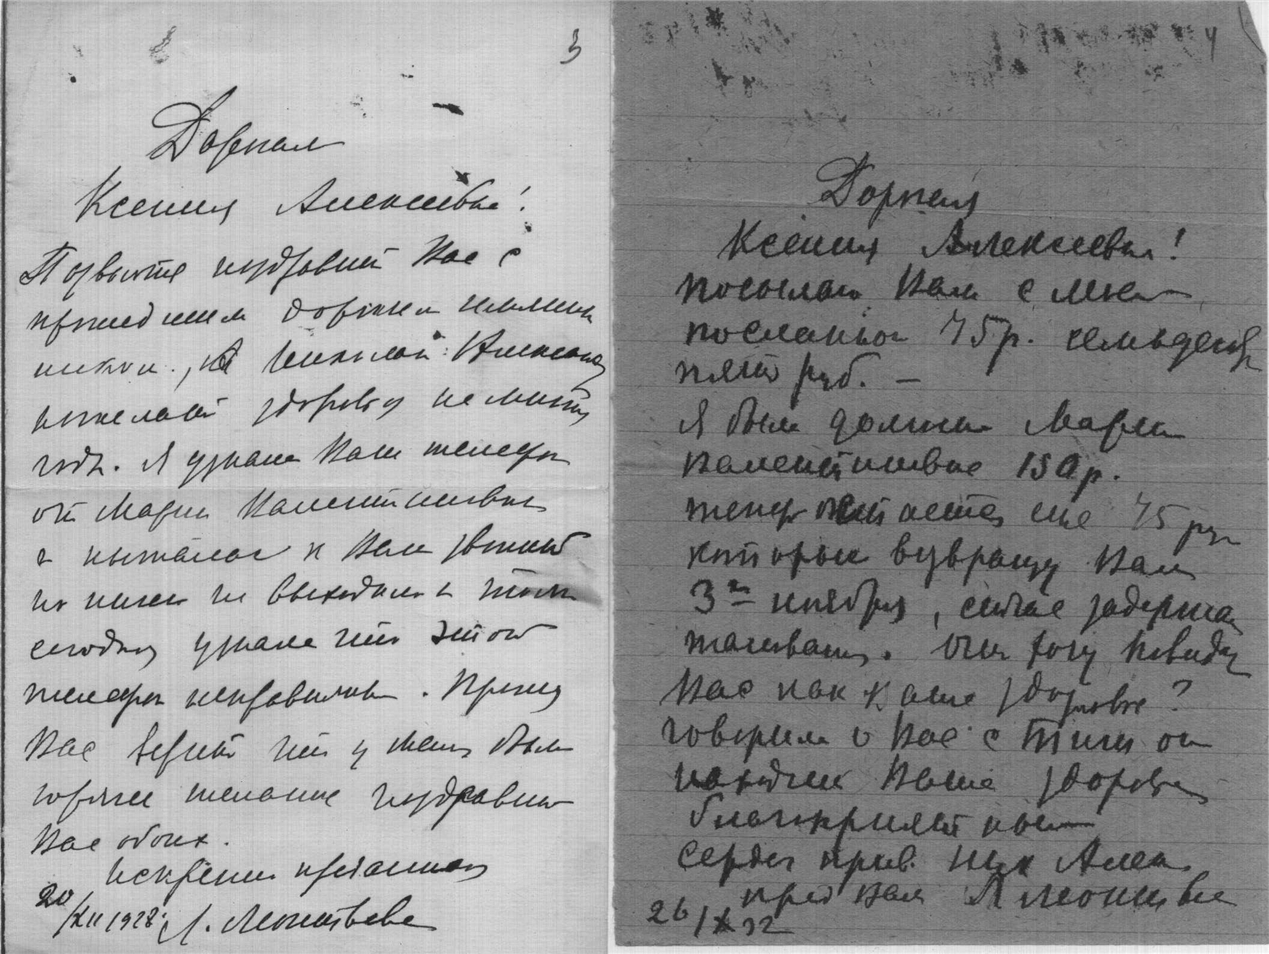 3
Дорогая
Ксения Алексеевна!
Позвольте поздравить Вас с
прошедшим дорогим имянин
ником, Николай
пожелать здоровья на многие
годы. Я узнала Ваш телефон
от Марии Валентиновны
и пыталась к Вам звонить
но никак не выходило и только
сегодня узнала что этот
телефон неисправилен. Прошу
Вас верить что у меня было
горячее желание поздравить
Вас обоих.
Искренне преданная
20/XII 1928. Л. Леонтьева
4
Дорогая
Ксения Алексеевна!
посылаю Вам с
посланной 75 р. семьдесят
пять руб. —
Я была должна Марии
Валентиновне 150 р.
теперь остается еще 75 руб
которые возвращу Вам
3го ноября, сейчас задержка
хочу повидать
Вас как Ваше здоровье?
говорили о Вас с он
находит Ваше здоровье
благоприятным
сердеч прив. Ник Алек.
пред Вам Л Леонтьева
26/X 32